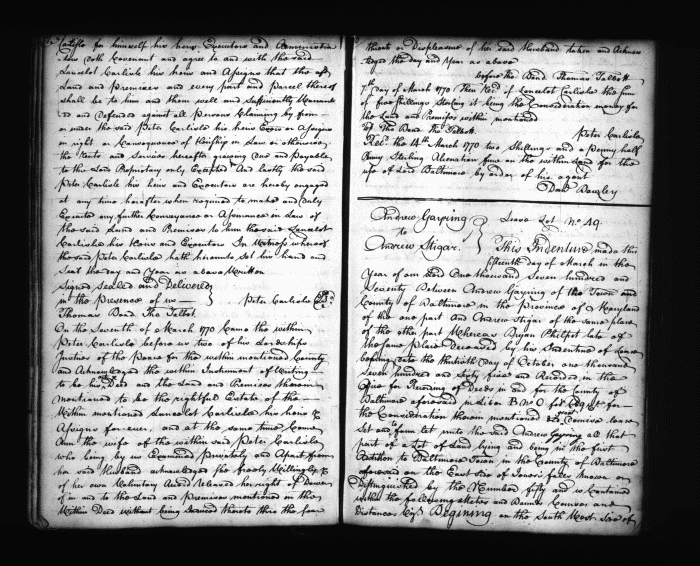 Carlisle for himself his heirs Executors and Administra
doth Covenant and agree to and with the said
Lancelot Carlisle his heirs and Assigns that the afd
Land and premises and every part and Parcel thereof
shall be to him and them well and sufficiently Warrant
ed and Defended against all persons Claiming by from
or under the said Peter Carlisle his heirs Exors or Assigns
in right or Consequence of Heirship in Law or otherwise
the Rents and Services hereafter growing due and payable
to the Lord Proprietary only Excepted And lastly the said
Peter Carlisle his heirs and Executors are hereby engaged
at any time hereafter when required to make and duly
Execute any further Conveyance or Assurance in Law of
the said Land and Premises to him the said Lancelot
Carlisle his heirs and Executors In Witness whereof
the said Peter Carlisle hath hereunto set his hand and
Seal the day and Year as above Written
Signed sealed and Delivered
in the presence of us — Peter Carlisle
Thomas Bond Tho Talbot
On the Seventh of March 1770 Came the within
Peter Carlisle before us two of his Lordships
Justices of the Peace for the within mentioned County
and Acknowledged the within Instrument of Writing
to be his Deed and the Land and Premises therein
mentioned to be the rightful Estate of the
Within mentioned Lancelot Carlisle his heirs &
Assigns for ever. and at the same time Came
Ann the wife of the within said Peter Carlisle
who being by us Examined Privately and Apart from
her said Husband acknowledged she freely Willingly &
of her own Voluntary Accord released her right of Dower
of in and to the Land and Premises mentioned in the
Within Deed without being Induced thereto thro the fear
threats or Displeasure of her said Husband taken and Acknow
ledged the day and Year as above
before Tho Bond Thomas Talbott
7th Day of March 1770 Then Recd of Lancelot Carlisle the sum
of five shillings Sterling it being the Consideration money for
the Land and Premises within mentioned
Tho Bond Tho Talbott Peter Carlisle
Recd the 14th March 1770 two Shillings and a penny half
Penny Sterling Alienation fine on the within Land for the
use of Lord Baltimore by order of his agent
Danl Dawley
Andrew Gayring Lease Lot No 49
to
Andrew Stigar. This Indenture made this
fifteenth day of March in the
Year of our Lord One thousand Seven hundred and
Seventy Between Andrew Gayring of the Town and
County of Baltimore in the province of Maryland
of the one part And Andrew Stigar of the same place
of the other part Whereas Bryan Philpot late of
the same place Deceased by his Indenture of Lease
bearing date the thirtieth day of October one thousand
Seven hundred and Sixty five and Recorded in the
Office for Recording of Deeds in and for the County of
Baltimore aforesaid in Liber B No O fol for
the Consideration therein mentioned did demise lease
Set and farm let unto the said Andrew Gayring all that
part of a Lot of Land lying and being in the first
Addition to Baltimore Town in the County of Baltimore
aforesaid on the East side of Jones's falls known or
Distinguished by the Number fifty and is Contained
within the following metes and Bounds Courses and
Distances Viz Begining on the South West side of